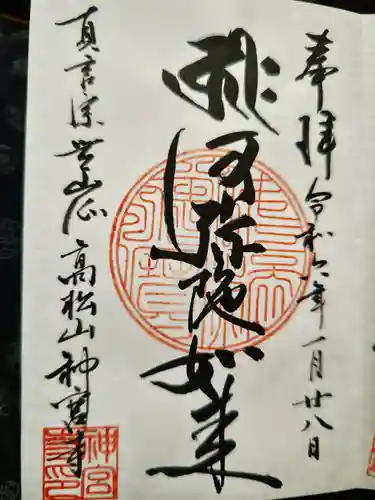 奉拝 令和六年一月廿八日
阿弥陀如来
真言宗豊山派 高松山 神宮寺